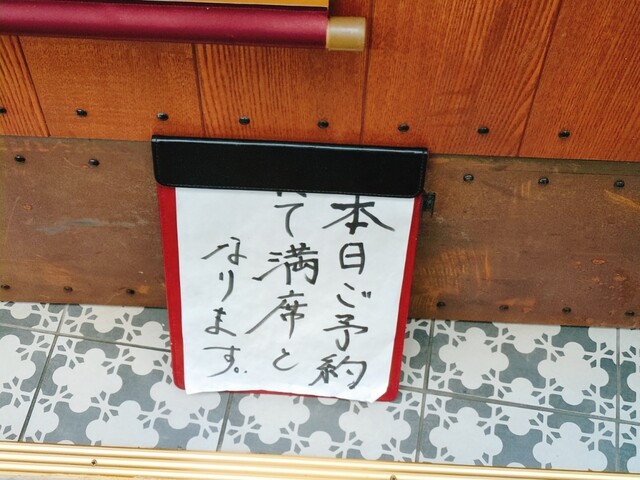 本日ご予約
て満席と
なります。